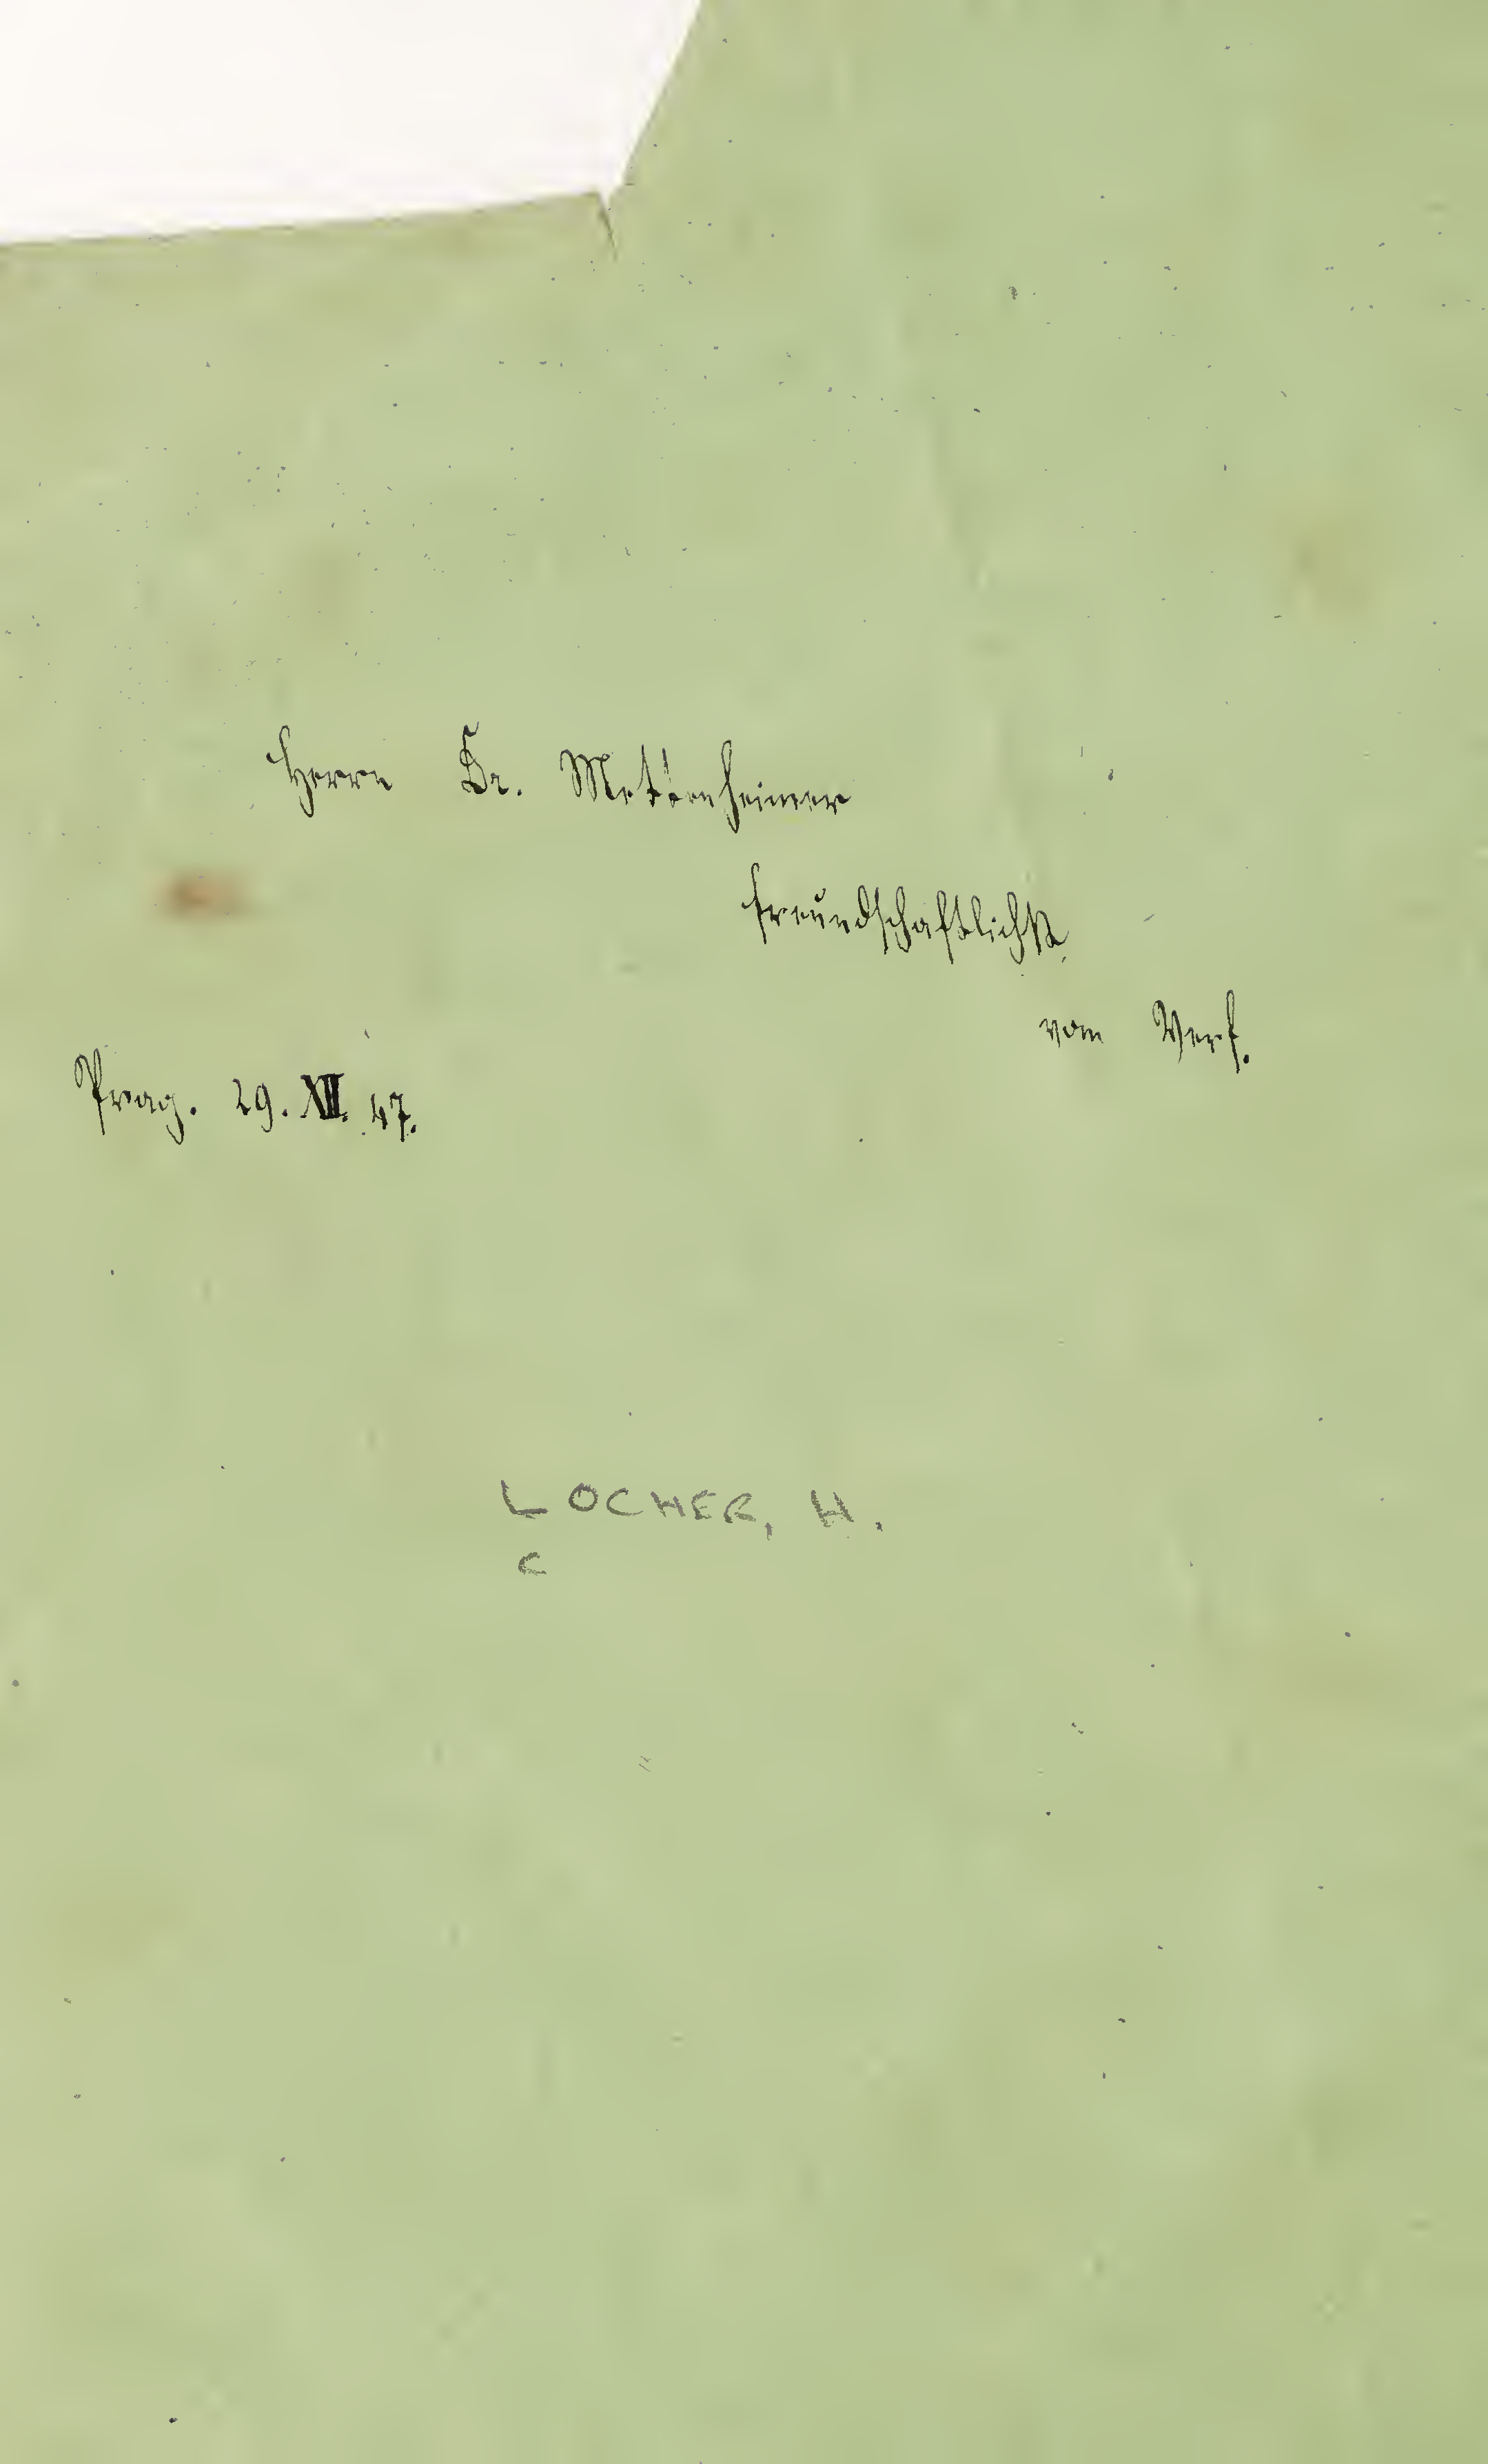 Herrn Dr. Mettenheimer
freundschaftlichst
vom Verf.
Prag. 29. XII. 47.
LOCHER, H.
C